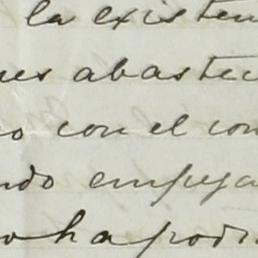 la existen
ues abastec
o con el con
ndo empeza
o ha podi